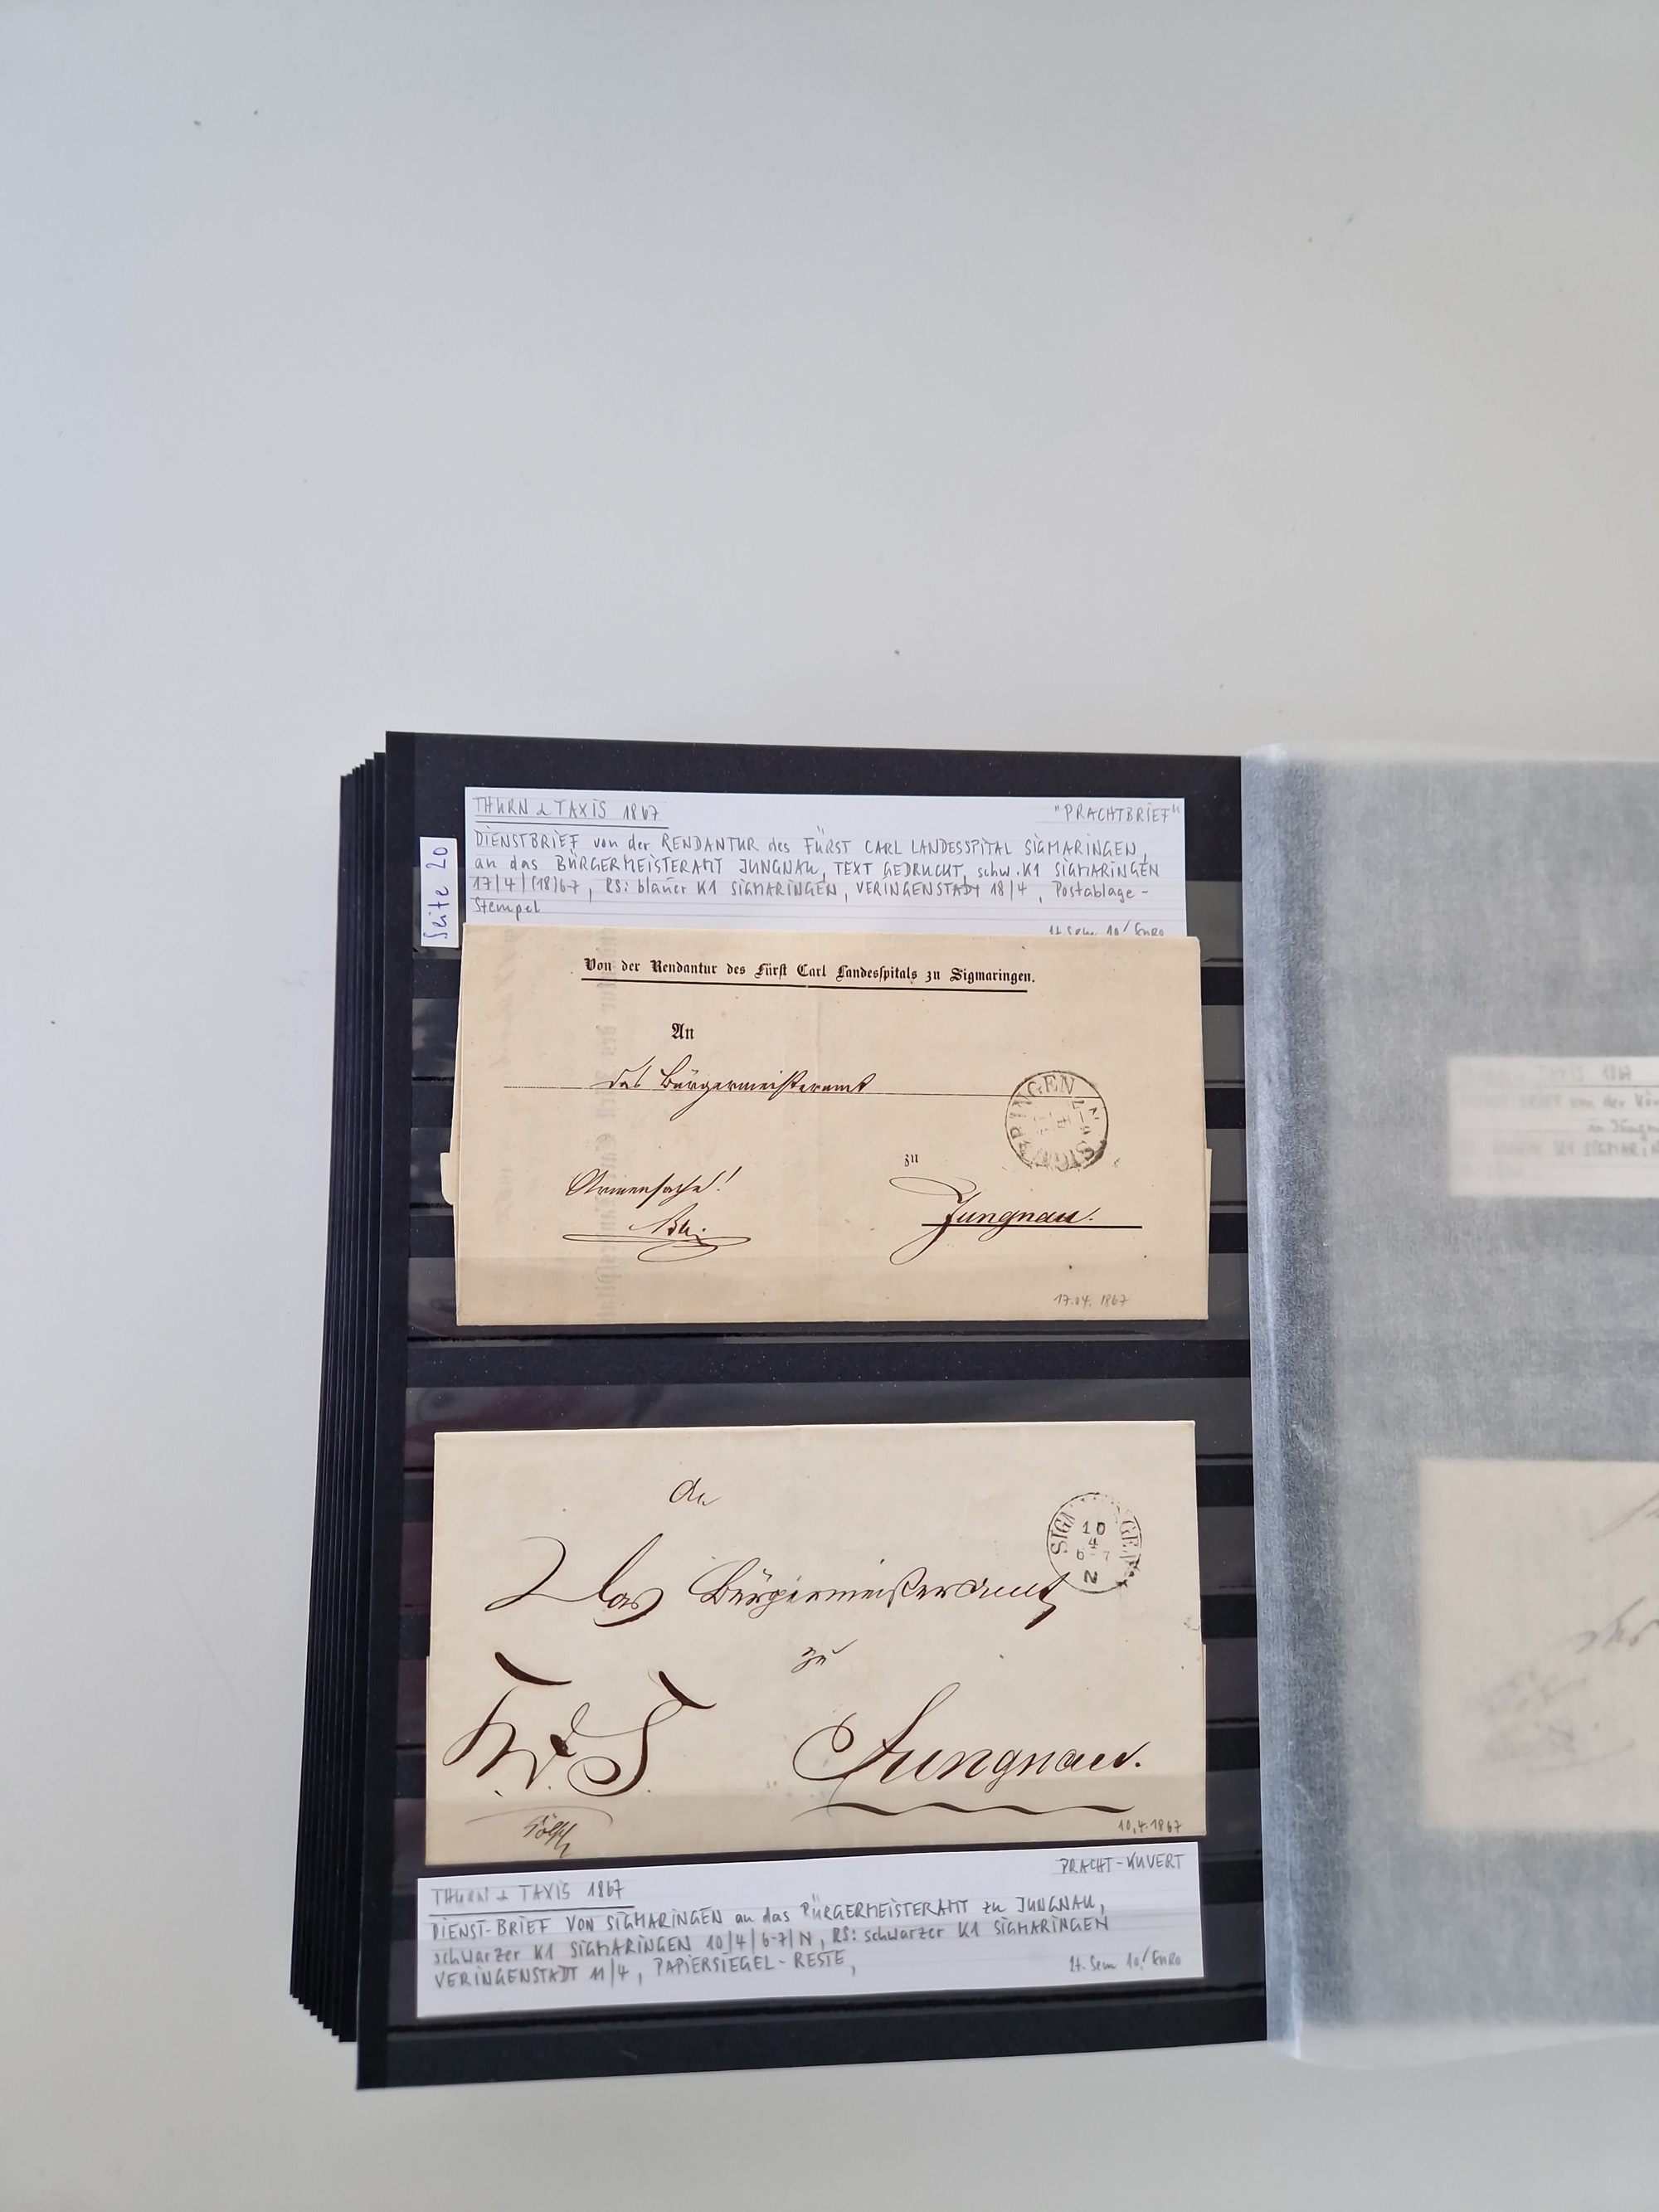 Seite 20
THURN & TAXIS 1867 "PRACHTBRIEF"
DIENSTBRIEF von der RENDANTUR des FÜRST CARL LANDESSPITAL SIGMARINGEN,
an das BÜRGERMEISTERAMT JUNGNAU, TEXT GEDRUCKT, schw. K1 SIGMARINGEN
17/4/(18)67, RS: blauer K1 SIGMARINGEN, VERINGENSTADT 18/4, Postablage-
Stempel
lt. Sem 10,! Euro
Von der Rendantur des Fürst Carl Landesspitals zu Sigmaringen.
An
das Bürgermeisteramt
zu
Armensache!
Jungnau.
17.04.1867
An
Das Bürgermeisteramt
SIGM GEN
10
4
6-7
N
zu
Jungnau.
10.4.1867
PRACHT-KUVERT
THURN & TAXIS 1867
DIENST-BRIEF VON SIGMARINGEN an das BÜRGERMEISTERAMT zu JUNGNAU,
schwarzer K1 SIGMARINGEN 10/4/6-7/N, RS: schwarzer K1 SIGMARINGEN
VERINGENSTADT 11/4, PAPIERSIEGEL-RESTE,
lt. Sem 10,! Euro